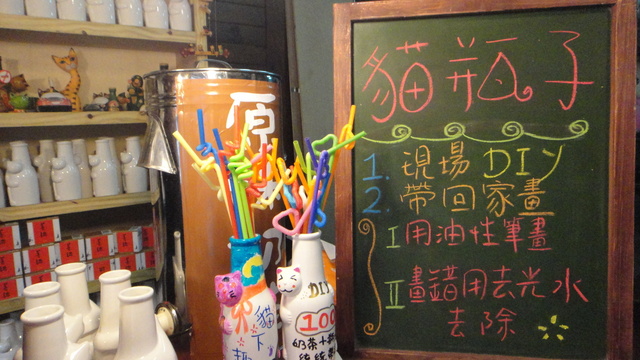 貓瓶子
1. 現場DIY
2. 帶回家畫
I 用油性筆畫
II 畫錯用去光水
去除
原
DIY
100
貓
下